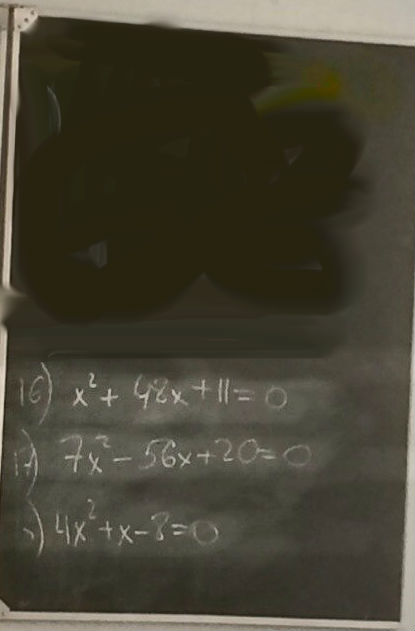 16) x² + 48x + 11 = 0
17) 7x² - 56x + 20 = 0
) 4x² + x - 8 = 0